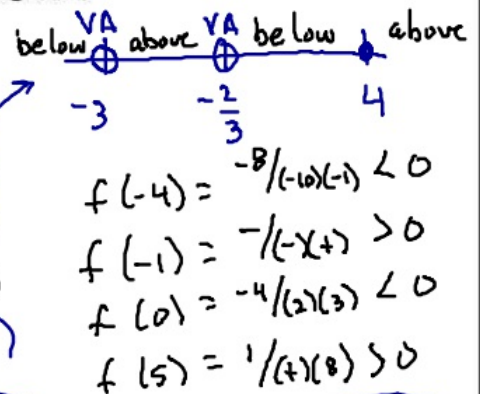 VA VA
below above below above
-3 -2/3 4
f(-4) = -8/(-10)(-1) < 0
f(-1) = -/(-)(+) > 0
f(0) = -4/(2)(3) < 0
f(5) = 1/(+)(8) > 0